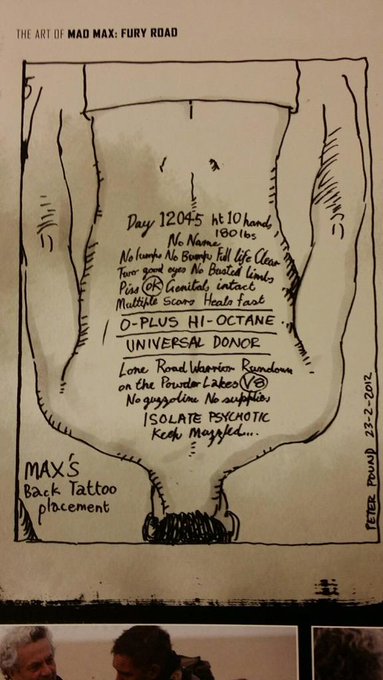 THE ART OF MAD MAX: FURY ROAD
Day 12045 ht 10 hands
180 lbs
No Name
No lumps No Bumps Full life Clear
Two good eyes No Busted limbs
Piss OK Genitals intact
Multiple Scars Heals fast
O-PLUS HI-OCTANE
UNIVERSAL DONOR
Lone Road Warrior Rundown
on the Powder Lakes V8
No guzzoline No supplies
ISOLATE PSYCHOTIC
Keep Muzzled...
MAX'S
Back Tattoo
placement
PETER POUND 23-2-2012